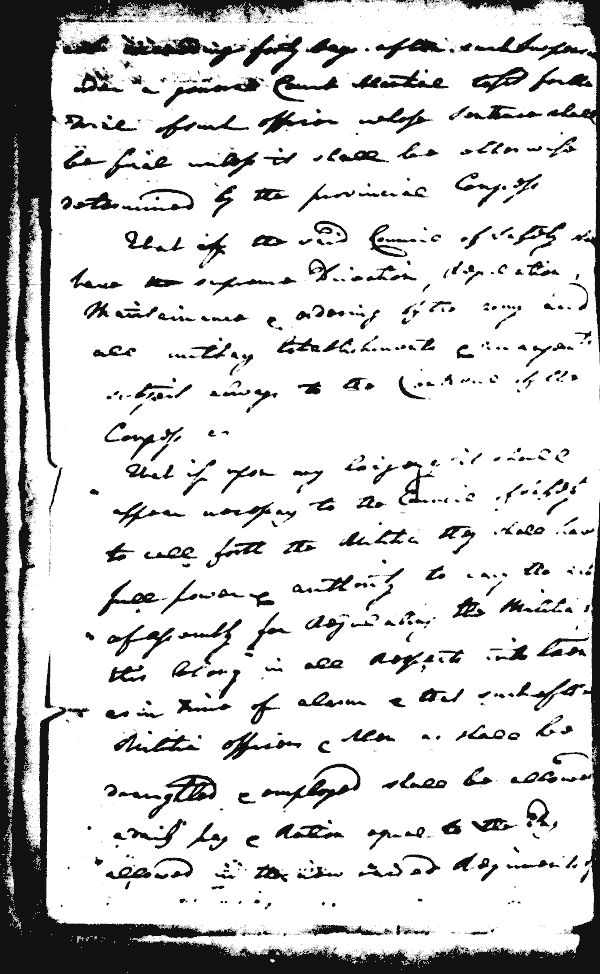 exceeding forty days after such suspension
a general Court Martial for the
trial of such officer whose sentence shall
be final unless it shall be otherwise
determined by the provincial Congress
That the said Council of Safety
have the supreme Direction, Regulation,
Maintainance & ordering of the army and
all military Establishments & arrangements
subject always to the Controul of the
Congress
That if upon any Exigency it shall
appear necessary to the Council of Safety
to call forth the Militia they shall have
full power & authority to carry the act
of Assembly for Regulating the Militia of
this Colony in all respects into
as in time of alarm & that such of the
Militia officers & Men as shall be
draughted & employed shall be allowed
pay & Ration equal to the
allowed in the new raised Regiments of